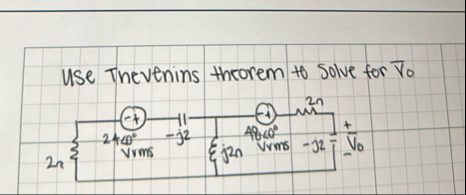 Use Thevenins theorem to Solve for V̄o
2Ω
-+
-+
24∠0°
Vrms
-j2
48∠0°
Vrms
-j2
+
V̄o
-
2Ω
j2Ω